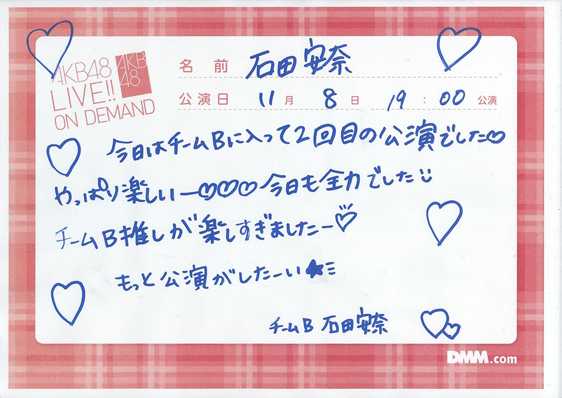 AKB48
LIVE!!
ON DEMAND
AKB
48
名前 石田安奈
公演日 11月 8日 19:00 公演
今日はチームBに入って2回目の公演でした♡
やっぱり楽しいー♡♡♡今日も全力でした
チームB推しが楽しすぎましたー♡
もっと公演がしたーい★
チームB 石田安奈
DMM.com